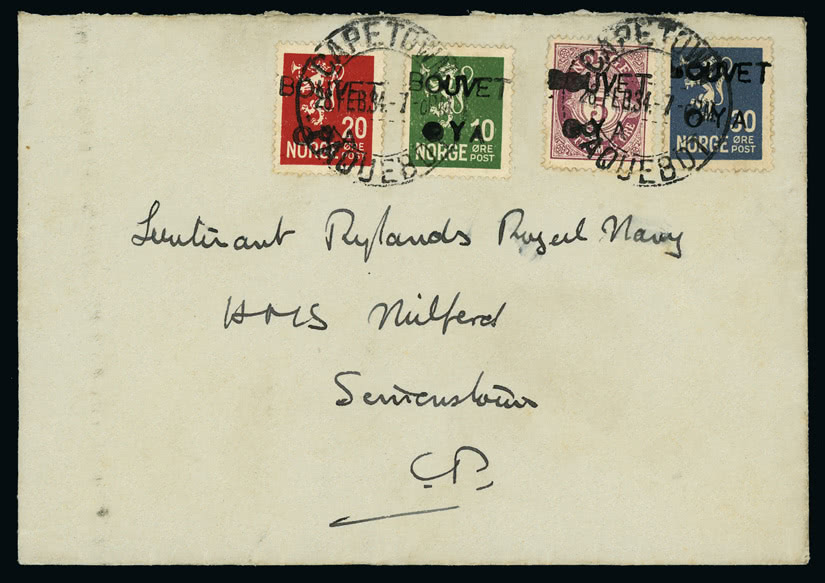 CAPETOWN CAPETOWN
BOUVET BOUVET BOUVET BOUVET
28 FEB 34 -7 28 FEB 34 -7
ØYA ØYA ØYA ØYA
20 10 5 30
ØRE ØRE ØRE
NORGE POST NORGE POST NORGE POST
PAQUEBOT PAQUEBOT
Lieutenant Rylands Royal Navy
HMS Milford
Simonstown
C.P.